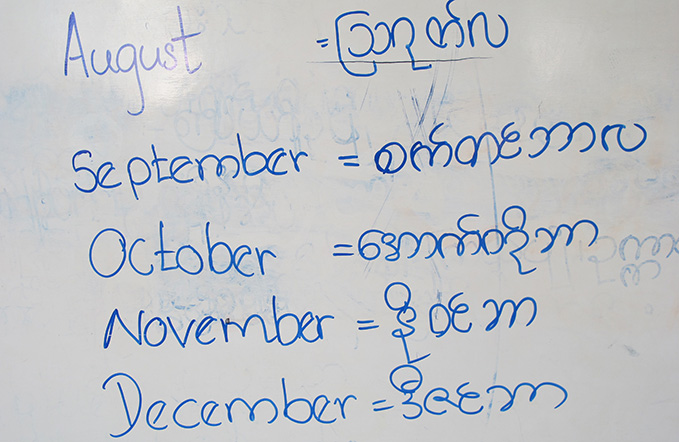 August = ဩဂုတ်လ
September = စက်တင်ဘာလ
October = အောက်တိုဘာ
November = နိုဝင်ဘာ
December = ဒီဇင်ဘာ